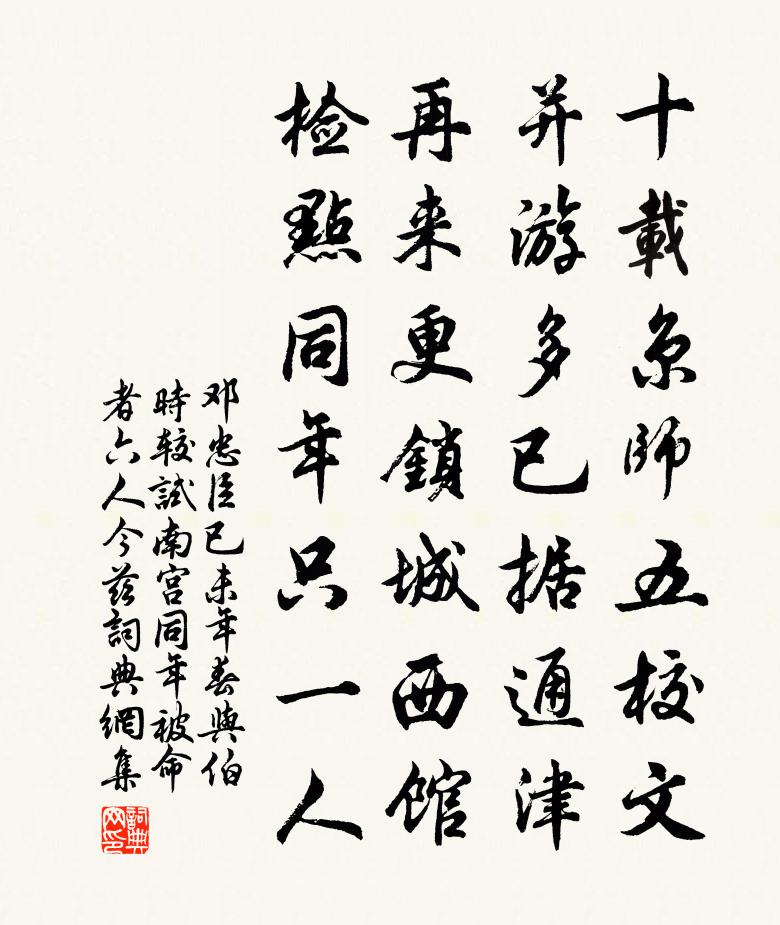 十載京師五校文
并游多已据通津
再来更鎖城西館
檢點同年只一人
邓忠臣已未年春與伯
時較試南宫同年被命
者六人今茲詞典網集
詞典網印